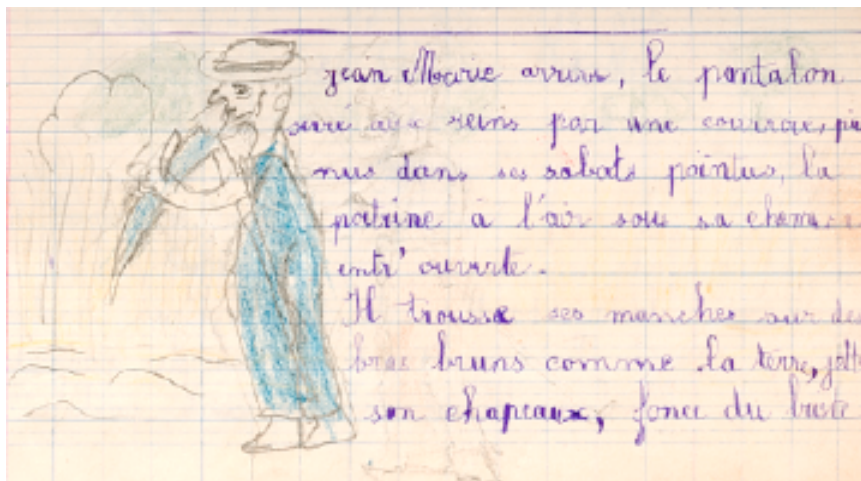 Jean Marie arrive, le pantalon
serré aux reins par une courroie, pie
nus dans ses sabots pointus, la
poitrine à l'air sous sa chemise
entr'ouverte.
Il trousse ses manches sur des
bras bruns comme la terre, jette
son chapeaux, fonce du buste